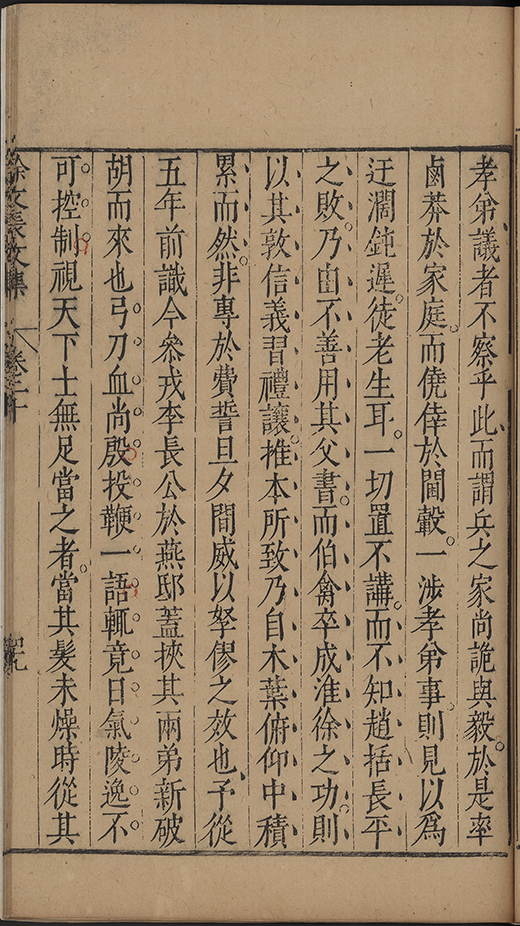 孝弟議者不察乎此而謂兵之家尚詭與毅於是率
鹵莽於家庭而僥倖於閫轂一涉孝弟事則見以為
迂濶鈍遲徒老生耳一切置不講而不知趙括長平
之敗乃由不善用其父書而伯禽卒成淮徐之功則
以其敦信義習禮讓推本所致乃自木葉俯仰中積
累而然非專於費誓旦夕間威以孥僇之效也予從
五年前識今叅戎李長公於燕邸蓋挾其兩弟新破
胡而來也弓刀血尚殷投鞭一語輒竟日氣陵逸不
可控制視天下士無足當之者當其髮未燥時從其
徐文長文集
卷二十
四九